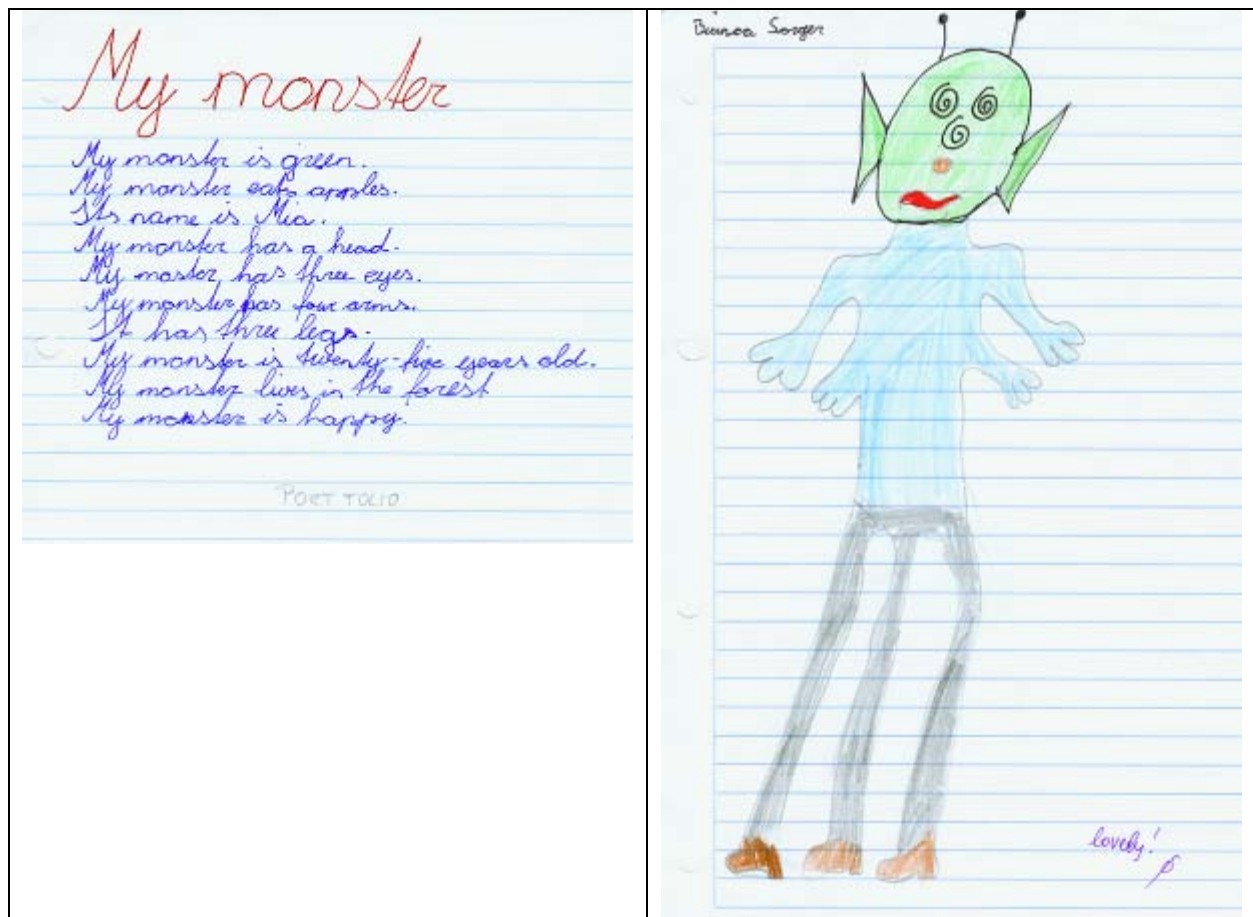 My monster
My monster is green.
My monster eats apples.
Its name is Mia.
My monster has a head.
My moster has three eyes.
My monster has four arms.
It has three legs.
My monster is twenty-five years old.
My monster lives in the forest
My monster is happy.
PORTFOLIO
Bianca Sorger
lovely!